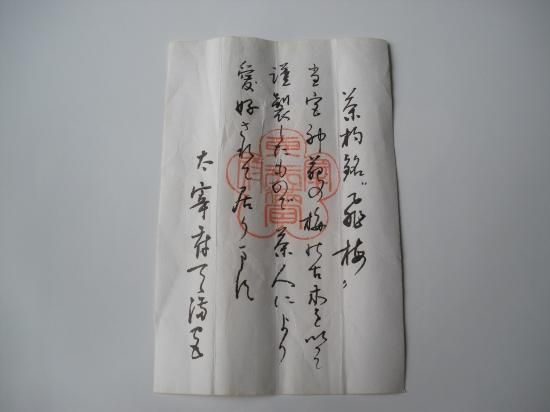 茶杓銘“飛梅”
当宮神苑の梅の古木を以って
謹製したもので茶人により
愛好されて居ります
太宰府天満宮